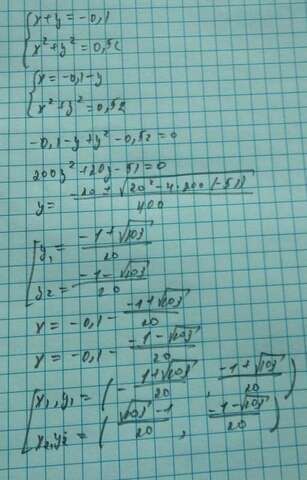 {x+y = -0,1
{x²+y² = 0,52
{x = -0,1-y
{x²+y² = 0,52
-0,1-y+y²-0,52=0
200y²+20y-51=0
y= (-20 ± √(20²-4·200·(-51)))/400
[y₁ = (-1+√103)/20
[y₂ = (-1-√103)/20
x = -0,1 - (-1+√103)/20
x = -0,1 - (-1-√103)/20
[x₁,y₁ = (- (1+√103)/20 , (-1+√103)/20)
[x₂,y₂ = ((√103-1)/20 , (-1-√103)/20)